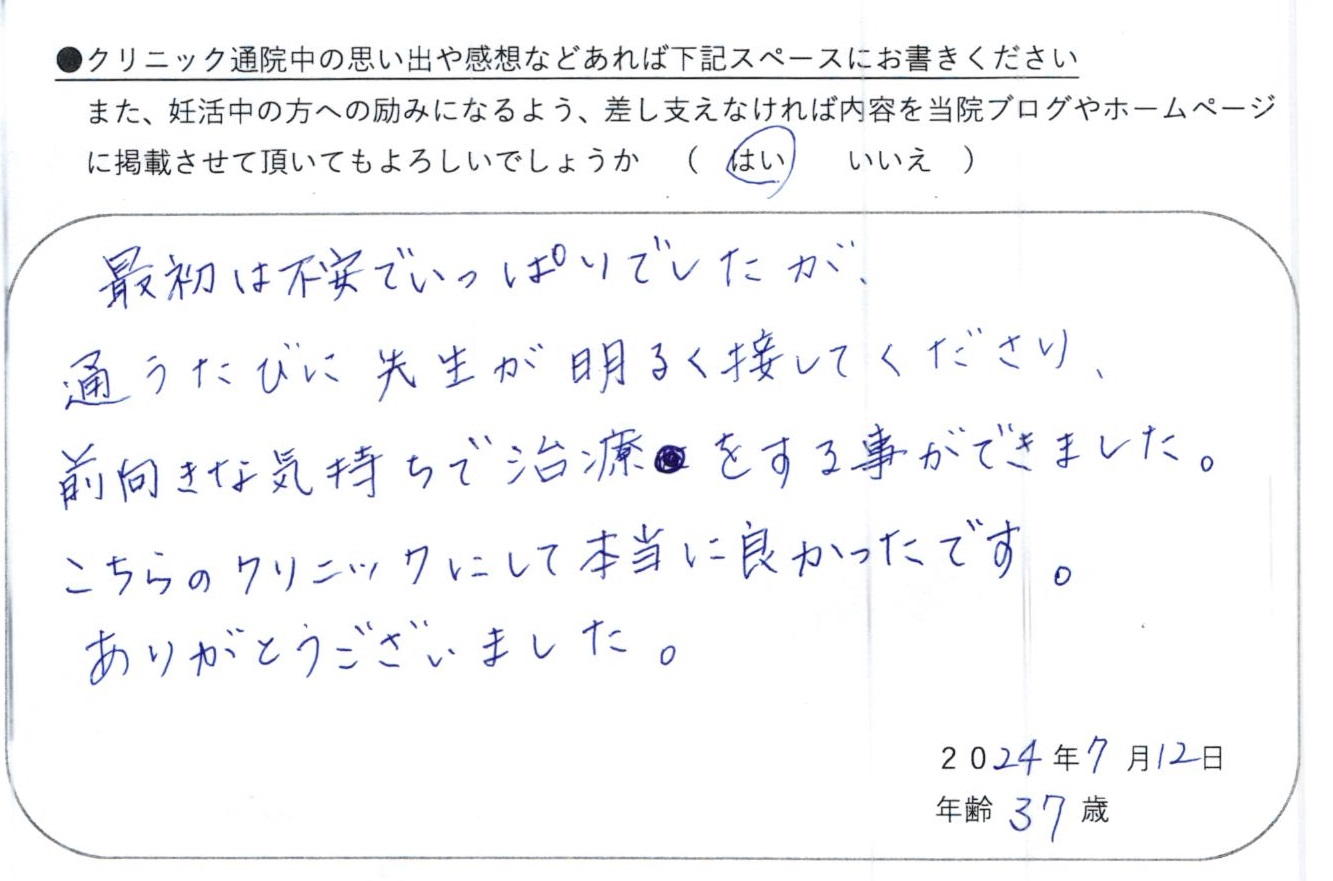 ●クリニック通院中の思い出や感想などあれば下記スペースにお書きください
また、妊活中の方への励みになるよう、差し支えなければ内容を当院ブログやホームページ
に掲載させて頂いてもよろしいでしょうか （ はい いいえ ）
最初は不安でいっぱいでしたが、
通うたびに先生が明るく接してくださり、
前向きな気持ちで治療をする事ができました。
こちらのクリニックにして本当に良かったです。
ありがとうございました。
2024年7月12日
年齢 37 歳